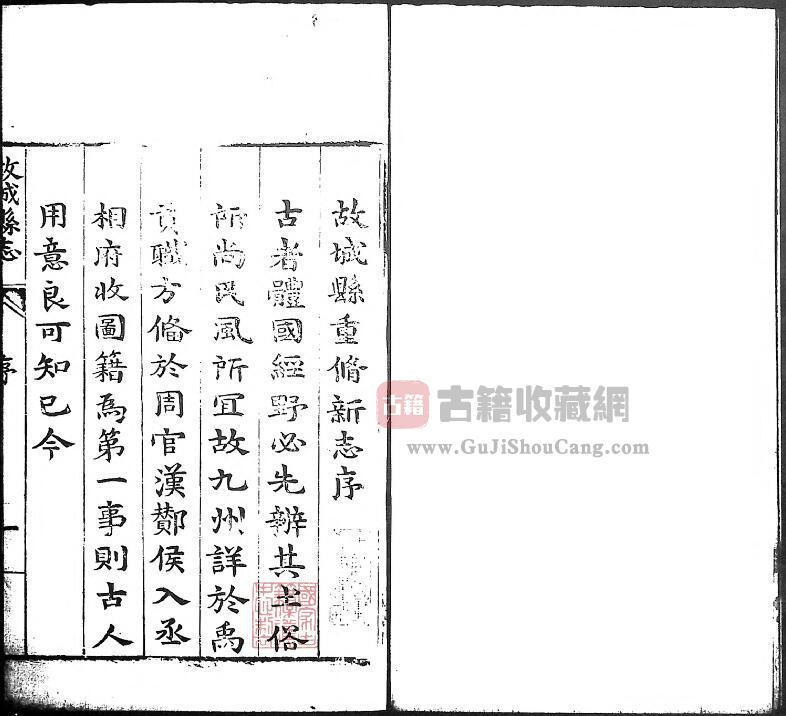 故城縣重脩新志序
古者體國經野必先辨其土俗
所尚民風所宜故九州詳於禹
貢職方備於周官漢酇侯入丞
相府收圖籍爲第一事則古人
用意良可知已今
故城縣志
序
一
古籍 古籍收藏網
www.GuJiShouCang.com